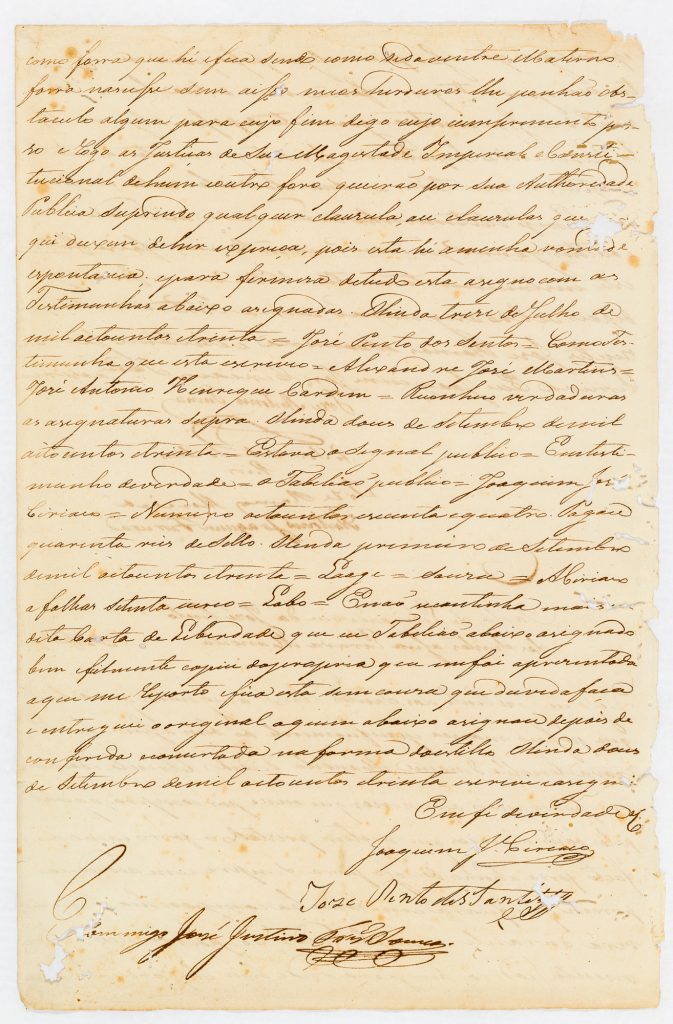 como forra que hé e fica sendo como se do ventre Materno
forra nasesse sem que os meos Erdeiros lhe ponhão obs-
taculo algum para cujo fim digo cujo cumprimento pe-
so e Rogo as Justicas de Sua Magestade Imperial e Consti-
tucional de hum e outro foro queirão por sua Authoridade
Publica suprindo qualquer clauzula, ou clauzulas que
qui deixem de hir expreça, pois esta he a minha vontade
espontania; e para firmeza de tudo esta asigno com as
Testimunhas abaixo asignadas. Olinda treze de Julho de
mil oitocentos e trinta = José Pinto dos Santos = Como Tes-
timunha que esta escrevi = Alexandre José Martins =
José Antonio Henrique Cardim = Reconheço verdadeiras
as asignaturas supra. Olinda dous de Setembro de mil
oitocentos e trinta = Estava o signal publico = Em testi-
munho de verdade = o Tabelião publico = Joaquim José
Ciriaco = Numero oitocentos secenta e quatro. Pagou
quarenta reis de Sello. Olinda primeiro de Setembro
de mil oitocentos e trinta = Lage = = Abiriaco
a folhas setenta = Lobo = E não se continha mais
dita Carta de Liberdade que eu Tabelião abaixo asignado
bem filmente copiei da propria que me foi aprezentada
a que me Reporto e fica esta sem couza que duvida faça
e entreguei o original a quem abaixo asignou depois de
conferida e concertada na forma do estillo Olinda dous
de Setembro de mil oitocentos e trinta escrevi e asignei
Em fé de verdade
Joaquim Jé. Ciriaco
Joze Pinto dos Santos
Commigo José Justino Frz Souza.